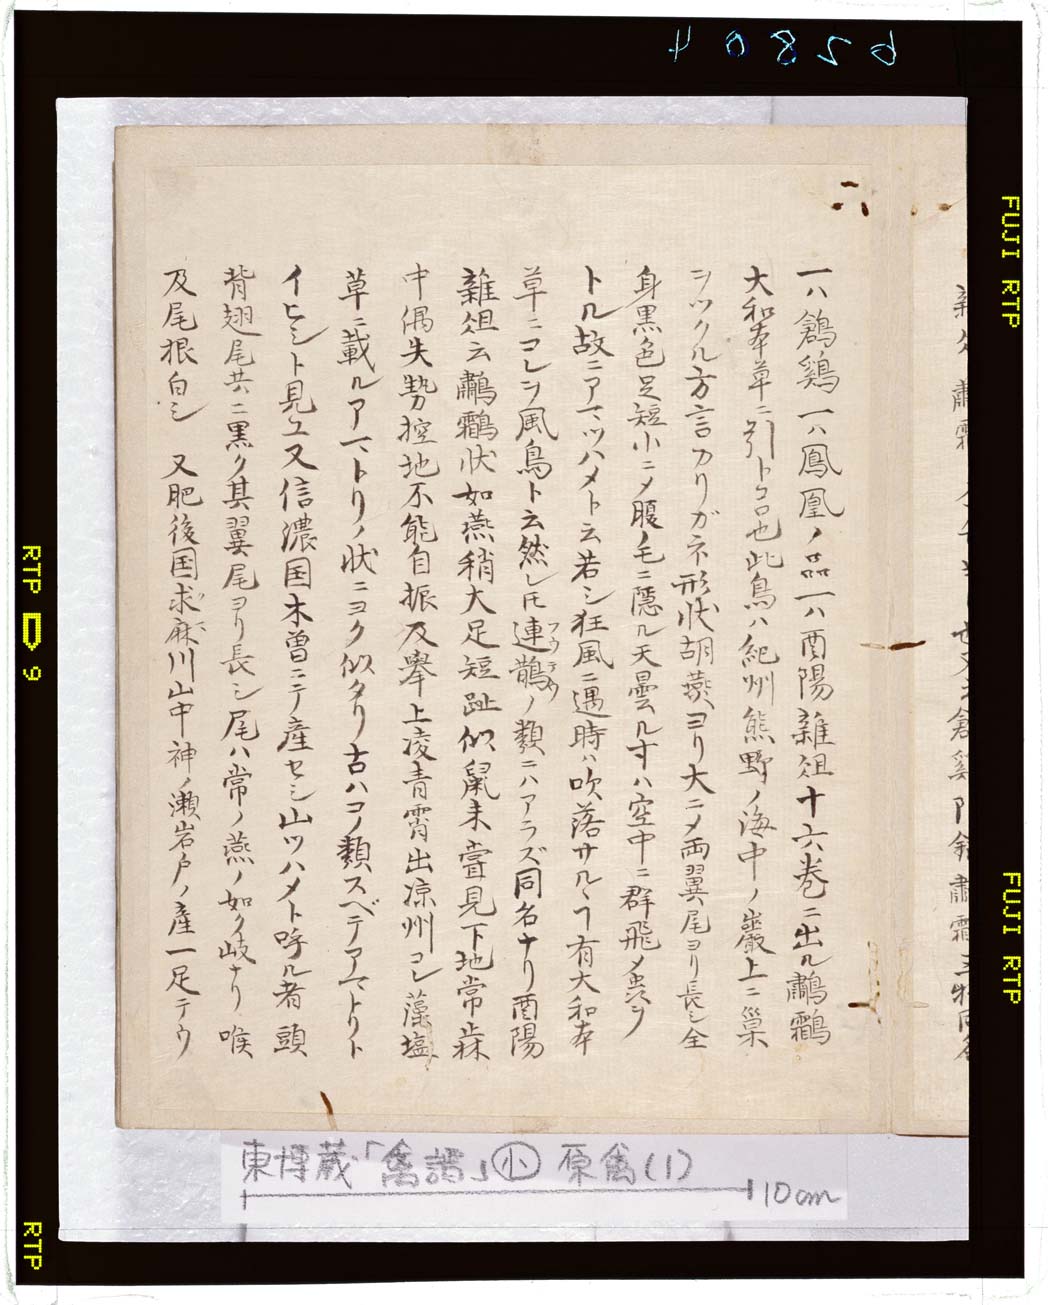 62804
FUJI RTP
FUJI RTP
一ハ鶬鷄一ハ鳳凰ノ品一ハ酉陽雑俎十六巻ニ出ル鷫鸘
大和本草ニ引トコロ也此鳥ハ紀州熊野ノ海中ノ巖上ニ巣
ヲツクル方言カリガネ形状胡燕ヨリ大ニメ両翼尾ヨリ長シ全
身黒色足短小ニメ腹毛ニ隠ル天曇ル寸ハ空中ニ群飛メ蟲ヲ
トル故ニアマツハメト云若シ狂風ニ遇時ハ吹落サルヽヿ有大和本
草ニコレヲ風鳥ト云然レ𪜈連鵲ノ類ニハアラズ同名ナリ酉陽
雑俎云鷫鸘状如燕稍大足短趾似鼠未嘗見下地常止林
中偶失勢控地不能自振及擧上凌青霄出凉州コレ藻塩
草ニ載ルアマトリノ状ニヨク似タリ古ハコノ類スベテアマトリト
イヒシト見ユ又信濃国木曽ニテ産セシ山ツハメト呼ル者頭
背翅尾共ニ黒ク其翼尾ヨリ長シ尾ハ常ノ燕ノ如ク岐ナリ喉
及尾根白シ 又肥後国求麻川山中神ノ瀬岩戸ノ産一足テウ
東博蔵「禽譜」小 原禽(1)
10cm
RTP D 9
RTP